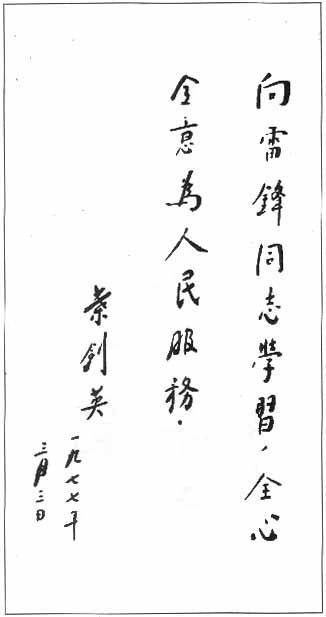 向雷鋒同志學習，全心
全意為人民服務．
葉劍英
一九七七年
三月三日